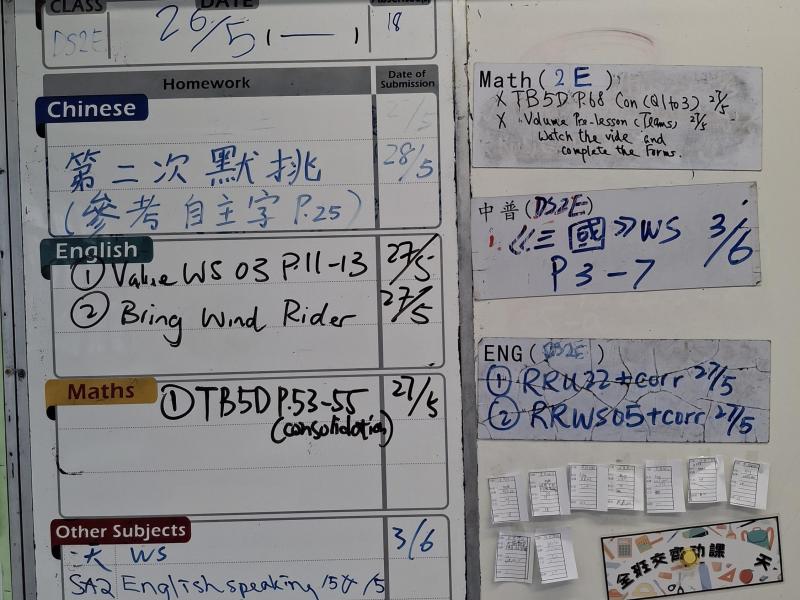 CLASS
DS2E
DATE
26/5 ( — )
18
Homework
Date of Submission
Chinese
27/5
第二次默挑
28/5
(參考自主字 P.25)
English
① Value WS 03 P.11-13
27/5
② Bring Wind Rider
27/5
Maths
① TB5D P.53-55
27/5
(consolidation)
Other Subjects
WS
3/6
SA2 English speaking
Math ( 2E )
X TB5D P.68 Con (Q1 to 3) 27/5
X Volume Pre-lesson (Teams) 27/5
Watch the vide and
complete the Forms.
中普 (DS2E)
1. 《三國》WS 3/6
P 3-7
ENG (DS2E)
① RRU22+corr 27/5
② RRWS05+corr 27/5
全班交齊功課 天